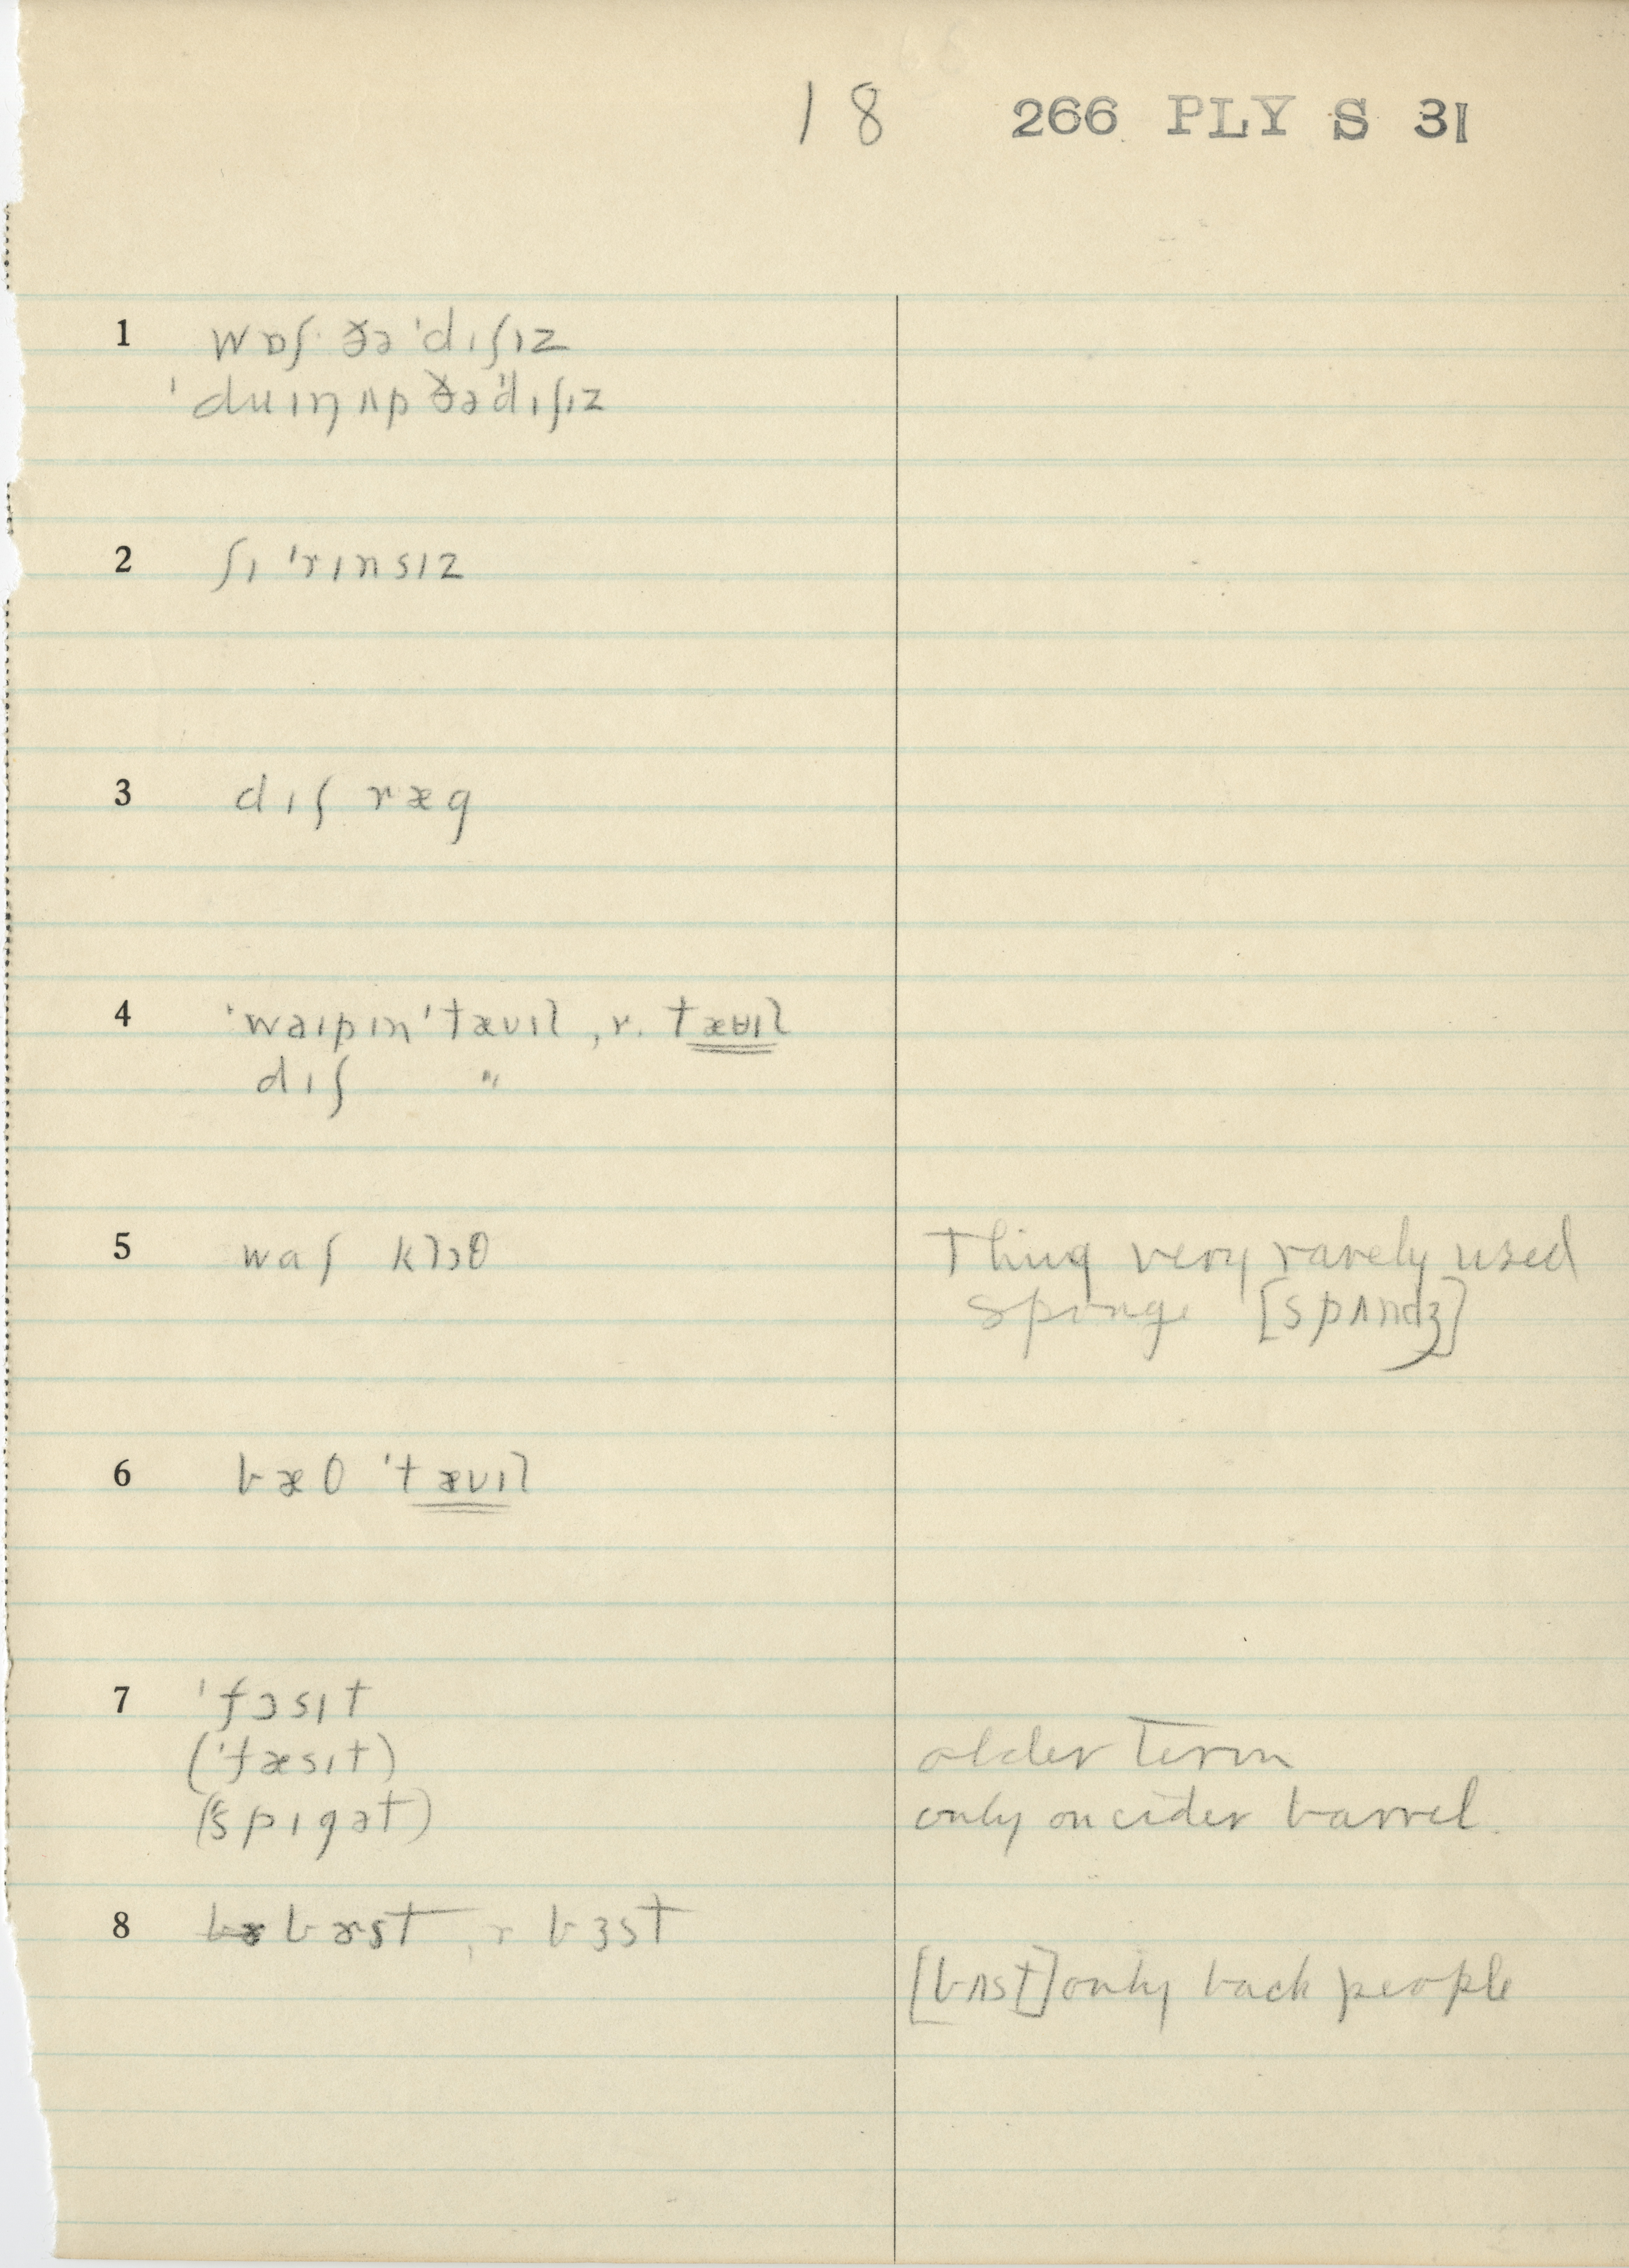 18 266 PLY S 31
1 wɒʃ ðə ˈdɪʃɪz
ˈduɪŋ ʌp ðə ˈdɪʃɪz
2 ʃɪ ˈrɪnsɪz
3 dɪʃ ræg
4 ˈwaɪpɪn ˈtæʊɪl , r. tæʉɪl
dɪʃ "
5 waʃ klɔθ Thing very rarely used
sponge [spʌndʒ]
6 bæθ ˈtæʊɪl
7 ˈfɔsɪt
(ˈfæsɪt) older term
(ˈspɪgət) only on cider barrel.
8 bɤst , r bɜst
[bʌst] only back people